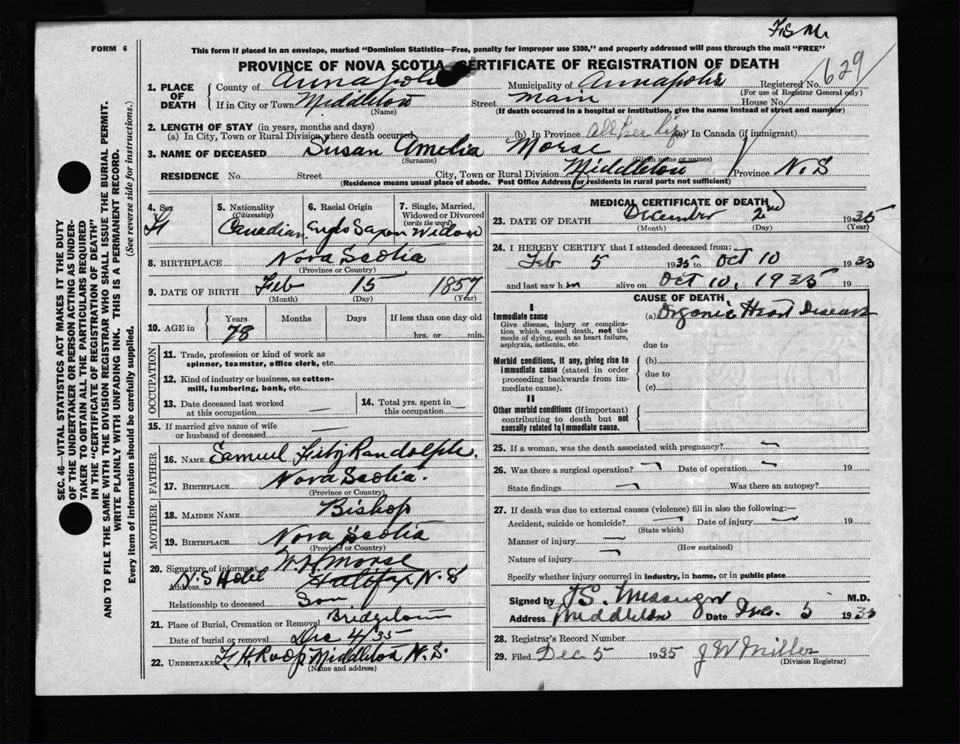 F.S.M.
FORM 6
This form if placed in an envelope, marked "Dominion Statistics—Free, penalty for improper use $300," and properly addressed will pass through the mail "FREE"
PROVINCE OF NOVA SCOTIA CERTIFICATE OF REGISTRATION OF DEATH
629
1. PLACE OF DEATH
County of Annapolis Municipality of Annapolis Registered No.
(For use of Registrar General only)
If in City or Town Middleton Street Main House No.
(Name) (If death occurred in a hospital or institution, give the name instead of street and number)
2. LENGTH OF STAY (in years, months and days)
(a) In City, Town or Rural Division where death occurred (b) In Province all her life (c) In Canada (if immigrant)
3. NAME OF DECEASED Susan Amelia Morse
(Surname) (Given name or names)
RESIDENCE No. Street City, Town or Rural Division Middleton Province N.S
(Residence means usual place of abode. Post Office Address for residents in rural parts not sufficient)
SEC. 46—VITAL STATISTICS ACT MAKES IT THE DUTY
OF THE UNDERTAKER OR PERSON ACTING AS UNDER-
TAKER TO OBTAIN ALL THE PARTICULARS REQUIRED
IN THE "CERTIFICATE OF REGISTRATION OF DEATH"
AND TO FILE THE SAME WITH THE DIVISION REGISTRAR WHO SHALL ISSUE THE BURIAL PERMIT.
WRITE PLAINLY WITH UNFADING INK. THIS IS A PERMANENT RECORD.
Every item of information should be carefully supplied. (See reverse side for instructions.)
4. Sex 5. Nationality (Citizenship) 6. Racial Origin 7. Single, Married, Widowed or Divorced (write the word)
Canadian Anglo Saxon Widow
8. BIRTHPLACE Nova Scotia
(Province or Country)
9. DATE OF BIRTH Feb 15 1857
(Month) (Day) (Year)
10. AGE in Years Months Days If less than one day old
78 hrs. or min.
OCCUPATION
11. Trade, profession or kind of work as spinner, teamster, office clerk, etc.
12. Kind of industry or business, as cotton-mill, lumbering, bank, etc.
13. Date deceased last worked at this occupation — 14. Total yrs. spent in this occupation —
15. If married give name of wife or husband of deceased
FATHER
16. NAME Samuel Fitz Randolph.
17. BIRTHPLACE Nova Scotia.
(Province or Country)
MOTHER
18. MAIDEN NAME Bishop
19. BIRTHPLACE Nova Scotia
(Province or Country)
20. Signature of informant W H Morse
Address N.S Hotel Halifax N.S
Relationship to deceased Son
21. Place of Burial, Cremation or Removal Bridgetown
Date of burial or removal Dec 4/35
22. UNDERTAKER Middleton N.S.
(Name and address)
MEDICAL CERTIFICATE OF DEATH
23. DATE OF DEATH December 2nd 1935
(Month) (Day) (Year)
24. I HEREBY CERTIFY that I attended deceased from:
Feb 5 1935 to Oct 10 1935
and last saw h alive on Oct 10, 1935 19
CAUSE OF DEATH
I
Immediate cause (a) Organic Heart Disease
Give disease, injury or complication which caused death, not the mode of dying, such as heart failure, asphyxia, asthenia, etc.
due to
Morbid conditions, if any, giving rise to immediate cause (stated in order proceeding backwards from immediate cause).
(b)
due to
(c)
II
Other morbid conditions (if important) contributing to death but not causally related to immediate cause.
25. If a woman, was the death associated with pregnancy? —
26. Was there a surgical operation? — Date of operation — 19
State findings — Was there an autopsy?
27. If death was due to external causes (violence) fill in also the following:—
Accident, suicide or homicide? — Date of injury — 19
(State which)
Manner of injury —
(How sustained)
Nature of injury —
Specify whether injury occurred in industry, in home, or in public place
Signed by Messenger M.D.
Address Middleton Date Dec. 5 1935
28. Registrar's Record Number
29. Filed Dec 5 1935 J W Miller
(Division Registrar)